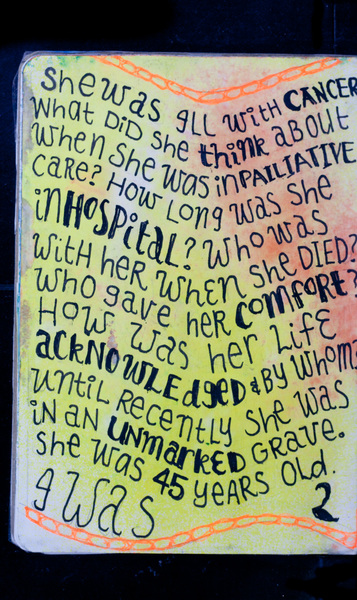 she was ill with CANCER
what DiD she think ABOUT
when she was in PALLIATIVE
CARE? How Long was she
in HOSPital? who was
with her when she DIED?
who gave her COMFORT?
How was her LIFE
acknowledged & By whom?
until recently she was
in an UNMARKED GRAVE.
she was 45 years old.
I was 2